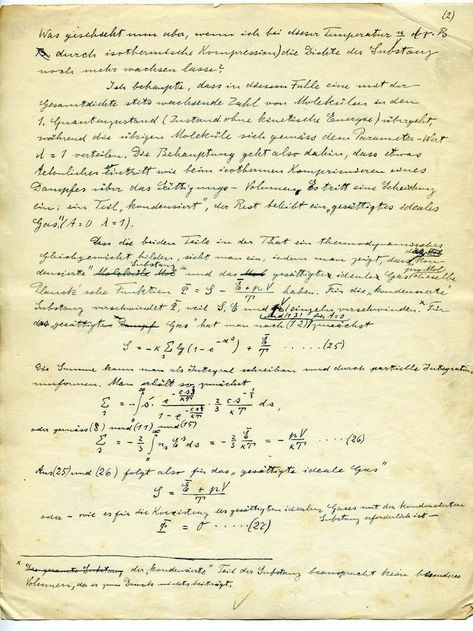 (2)
Was geschieht nun aber, wenn ich bei dieser Temperatur n/V (z. B.
durch isothermische Kompression) die Dichte der Substanz
noch mehr wachsen lasse?
Ich behaupte, dass in diesem Falle eine mit der
Gesamtdichte stets wachsende Zahl von Molekülen in den
1. Quantenzustand (Zustand ohne kinetische Energie) übergeht,
während die übrigen Moleküle sich gemäss dem Parameter-Wert
λ = 1 verteilen. Die Behauptung geht also dahin, dass etwas
Aehnliches eintritt wie beim isothermen Komprimieren eines
Dampfes über das Sättigungs-Volumen. Es tritt eine Scheidung
ein; ein Teil „kondensiert", der Rest bleibt ein „gesättigtes ideales
Gas" (A=0 λ=1).
Dass die beiden Teile in der That ein thermodynamisches
Gleichgewicht bilden, sieht man ein, indem man zeigt, dass
densierte" Substanz und das gesättigte ideale Gas
Planck'sche Funktion Φ = S − (Ē + pV)/T haben. Für die „kondensierte"
Substanz verschwindet Φ, weil S, Ē und V einzeln verschwinden.ˣ Für
das „gesättigte Gas" hat man nach (12) zunächst
S = −κ Σ lg(1 − e^−αˢ) + Ē/T ····· (25)
Die Summe kann man als Integral schreiben und durch partielle Integration
umformen. Man erhält so zunächst
Σ = −∫ s · e^−(cs^⅔/κT) / (1 − e^−(cs^⅔/κT)) · ⅔ cs^−⅓/κT ds,
oder gemäss (8) und (11) und (15)
Σ = −⅔ ∫ nₛ Eˢ ds = −⅔ Ē/κT = −pV/κT ····· (26)
Aus (25) und (26) folgt also für das „gesättigte ideale Gas"
S = (Ē + pV)/T
oder – wie es für die Koexistenz des gesättigten idealen Gases mit der kondensierten
Substanz erforderlich ist –
Φ = 0 ····· (27)
x Die gesamte Substanz der „kondensierte" Teil der Substanz beansprucht kein besonderes
Volumen, da er zum Druck nichts beiträgt.